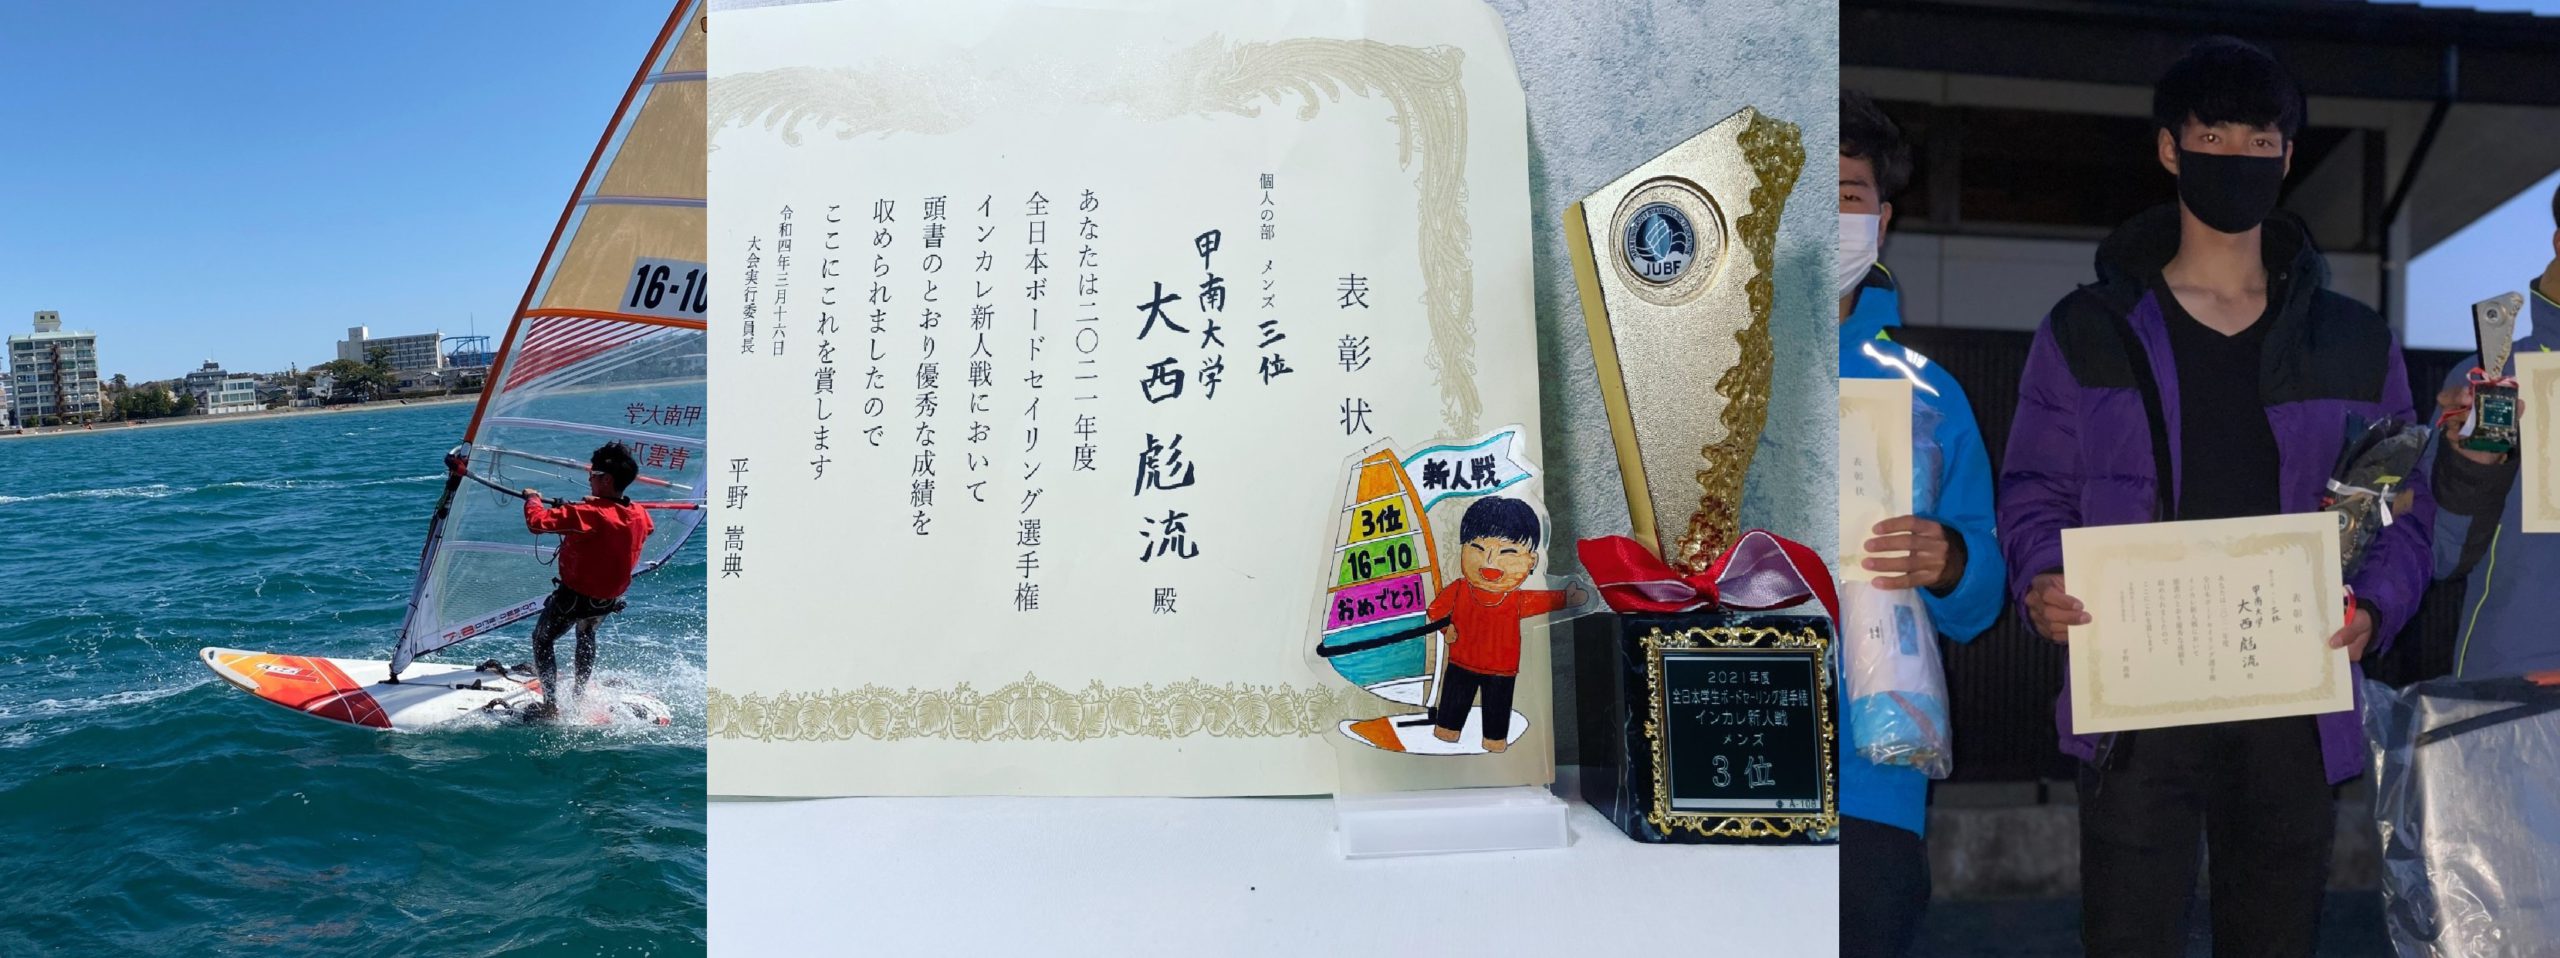 16-10
甲南大学
7.8 ONE DESIGN
表彰状
個人の部 メンズ 三位
甲南大学
大西 彪流 殿
あなたは二〇二一年度
全日本ボードセイリング選手権
インカレ新人戦において
頭書のとおり優秀な成績を
収められましたので
ここにこれを賞します
令和四年三月十六日
大会実行委員長
平野 嵩典
新人戦
3位
16-10
おめでとう!
JUBF
2021年度
全日本学生ボードセーリング選手権
インカレ新人戦
メンズ
3位
A-10B
表彰状
表彰状
三位
甲南大学
大西 彪流